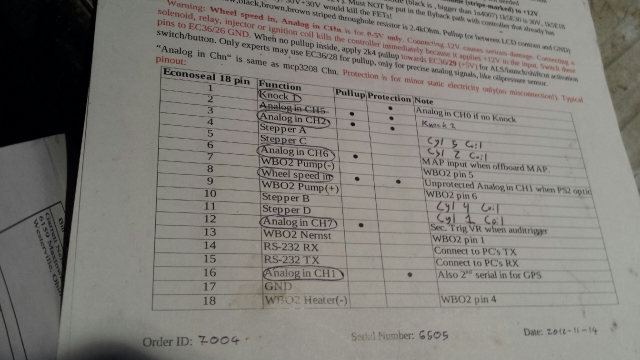 black,brown,brown striped throughole resistor is 2.4kOhm. Pullup (or between LCD contrast and GND)
Warning: Wheel speed in, Analog in CHn is for 0-5V only. Connecting 12V causes serious damage. Connecting a
solenoid, relay, injector or ignition coil kills the controller immediately because it applies +12V to the input. Switch these
pins to EC36/26 GND. When no pullup inside, apply 2k4 pullup towards EC36/29 (+5V) for ALS/launch/shiftcut activation
switch/button. Only experts may use EC36/28 for pullup, only for precise analog signals, like oilpressure sensor.
"Analog in Chn" is same as mcp3208 Chn. Protection is for minor static electricity only(no misconnection!). Typical
pinout:
Econoseal 18 pin Function Pullup Protection Note
1 Knock 1 • Analog in CH0 if no Knock
2 Analog in CH5 • •
3 Analog in CH2 • • Knock 2
4 Stepper A
5 Stepper C Cyl 3 Coil
6 Analog in CH6 • Cyl 2 Coil
7 WBO2 Pump(-) MAP input when offboard MAP.
8 Wheel speed in • • WBO2 pin 5
9 WBO2 Pump(+) Unprotected Analog in CH1 when PS2 optio
10 Stepper B WBO2 pin 6
11 Stepper D Cyl 4 Coil
12 Analog in CH7 • Cyl 1 Coil
Sec. Trig VR when auditrigger
13 WBO2 Nernst WBO2 pin 1
14 RS-232 RX Connect to PC's TX
15 RS-232 TX Connect to PC's RX
16 Analog in CH1 • Also 2nd serial in for GPS
17 GND
18 WBO2 Heater(-) WBO2 pin 4
Order ID: 7004 Serial Number: 5505 Date: 2012-11-14